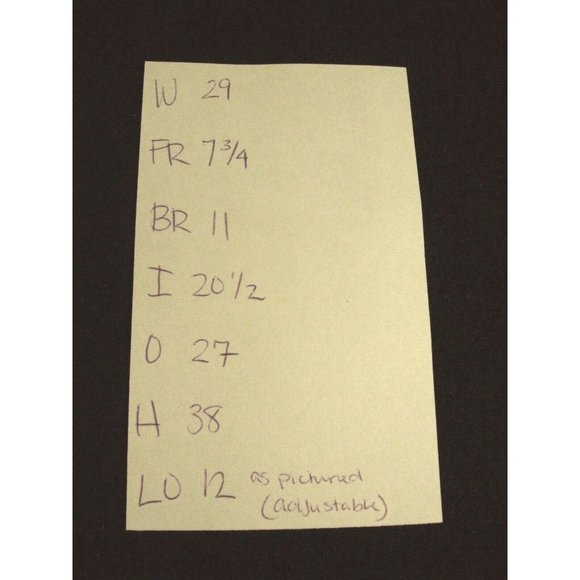 W 29
FR 7 3/4
BR 11
I 20 1/2
O 27
H 38
LO 12 as pictured
(adjustable)